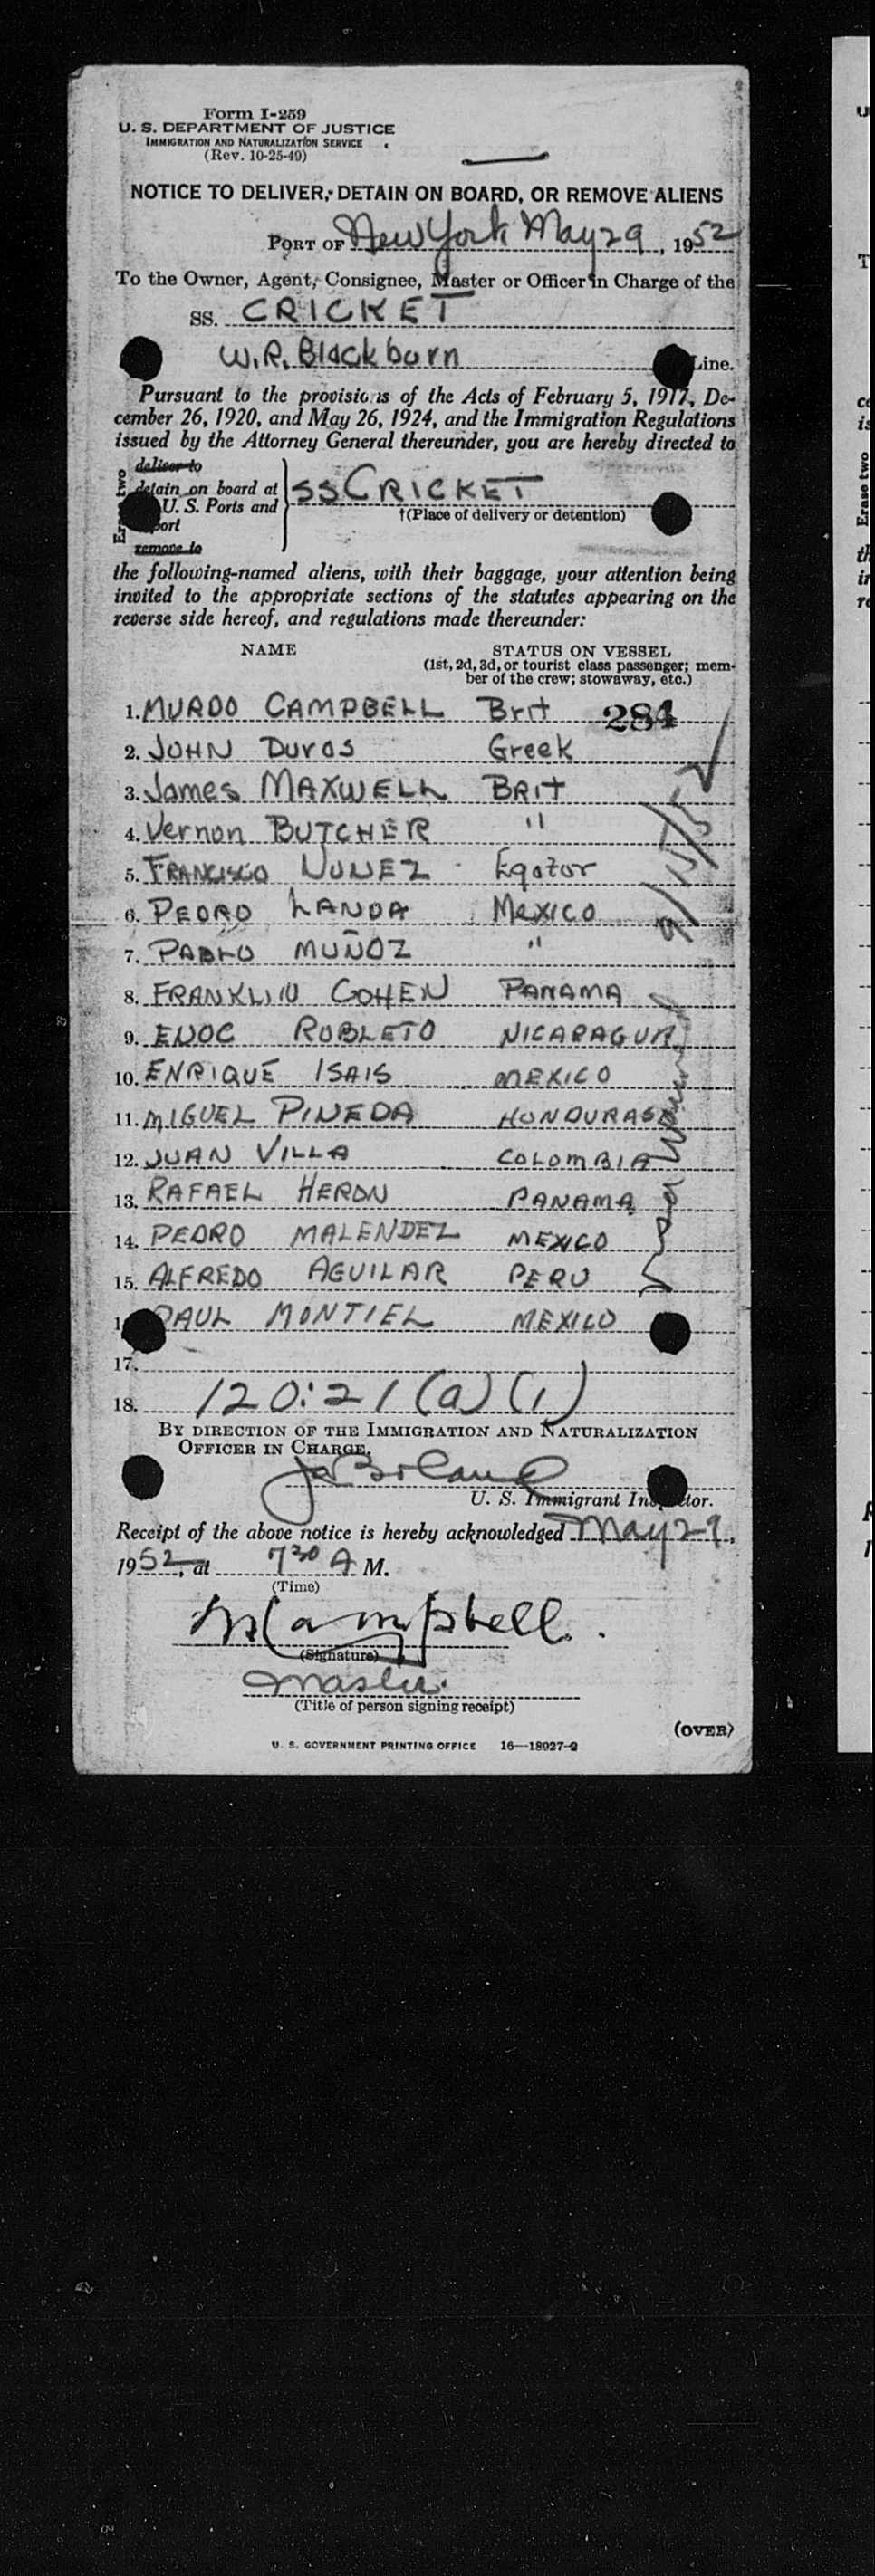 Form I-259
U. S. DEPARTMENT OF JUSTICE
IMMIGRATION AND NATURALIZATION SERVICE
(Rev. 10-25-49)
NOTICE TO DELIVER, DETAIN ON BOARD, OR REMOVE ALIENS
PORT OF New York May 29, 1952
To the Owner, Agent, Consignee, Master or Officer in Charge of the
SS. CRICKET
W.R. Blackburn Line.
Pursuant to the provisions of the Acts of February 5, 1917, De-
cember 26, 1920, and May 26, 1924, and the Immigration Regulations
issued by the Attorney General thereunder, you are hereby directed to
deliver to
detain on board at
U. S. Ports and
remove to
SS CRICKET
†(Place of delivery or detention)
the following-named aliens, with their baggage, your attention being
invited to the appropriate sections of the statutes appearing on the
reverse side hereof, and regulations made thereunder:
NAME STATUS ON VESSEL
(1st, 2d, 3d, or tourist class passenger; mem-
ber of the crew; stowaway, etc.)
1. MURDO CAMPBELL Brit 284
2. JOHN Duros Greek
3. James MAXWELL BRIT
4. Vernon BUTCHER "
5. FRANCISCO NUNEZ Eqator
6. PEDRO LANDA MEXICO
7. PABLO MUÑOZ "
8. FRANKLIN COHEN PANAMA
9. ENOC ROBLETO NICARAGUA
10. ENRIQUE ISAIS MEXICO
11. MIGUEL PINEDA HONDURAS
12. JUAN VILLA COLOMBIA
13. RAFAEL HERON PANAMA
14. PEDRO MALENDEZ MEXICO
15. ALFREDO AGUILAR PERU
PAUL MONTIEL MEXICO
17.
18. 120:21(a)(1)
BY DIRECTION OF THE IMMIGRATION AND NATURALIZATION
OFFICER IN CHARGE.
U. S. Immigrant Inspector.
Receipt of the above notice is hereby acknowledged May 29,
1952, at 7 30 A M.
(Time)
M Campbell.
(Signature)
Master
(Title of person signing receipt)
(OVER)
U. S. GOVERNMENT PRINTING OFFICE 16—18927-2